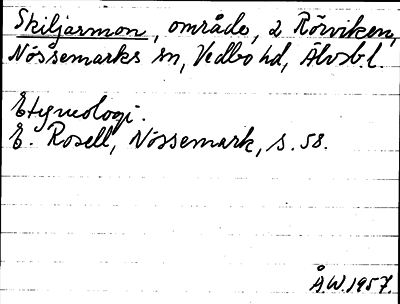 Skiljarmon, område, 2 Rörviken,
Nössemarks sn, Vedbo hd, Älvsb. l.
Etymologi.
E. Rosell, Nössemark, s. 58.
ÅW.1957.